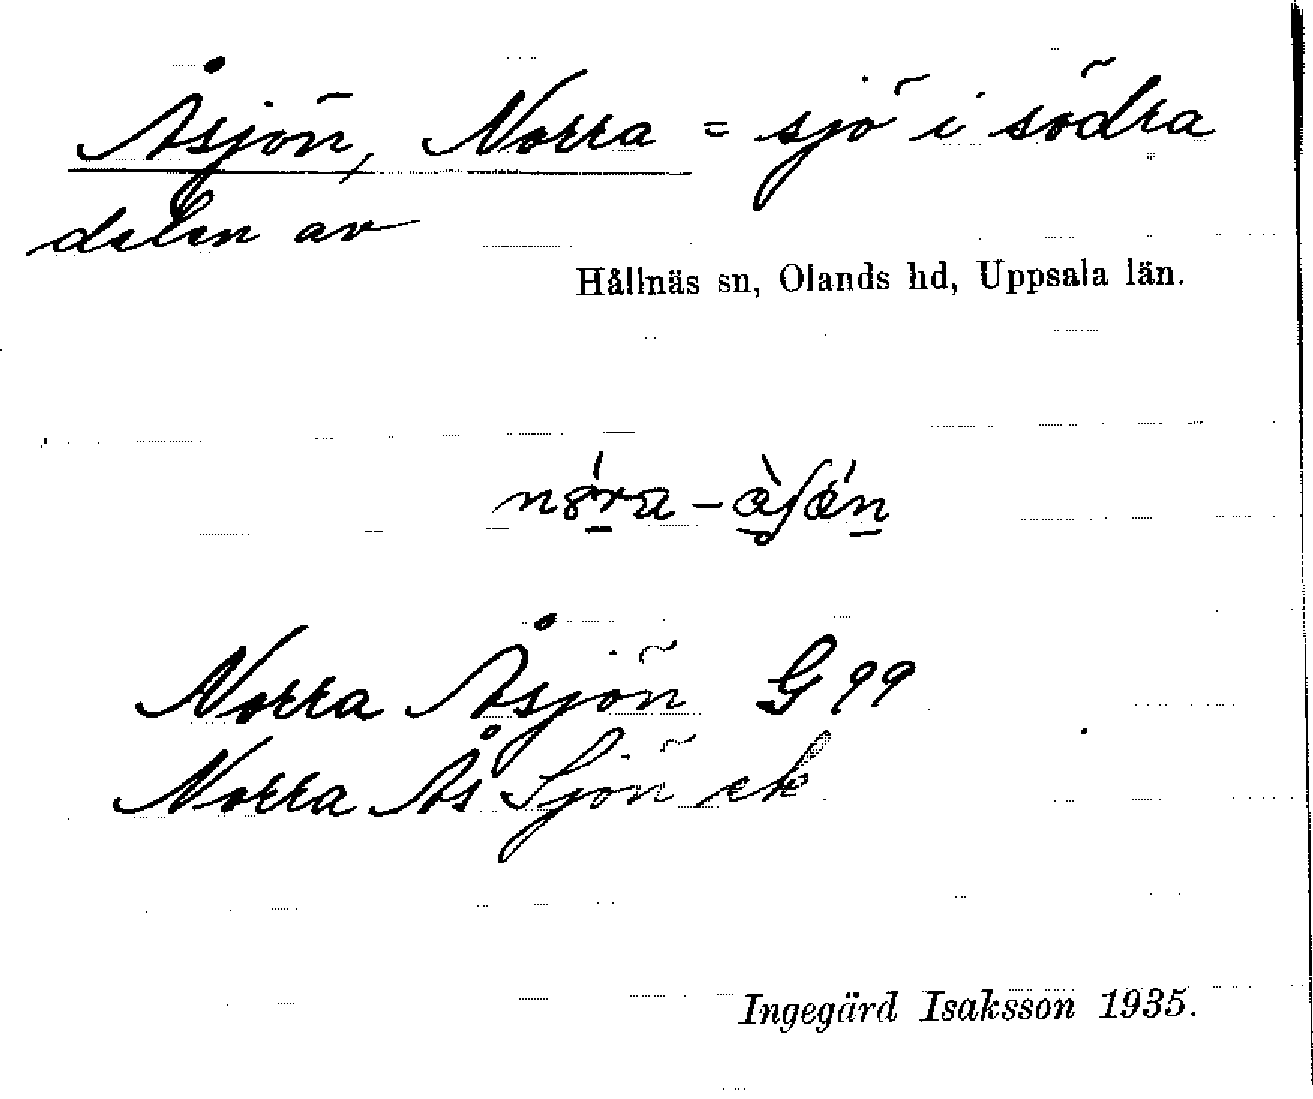 Åsjön, Norra = sjö i södra
delen av
Hållnäs sn, Olands hd, Uppsala län.
Norra Åsjön G 99
Norra Ås Sjön ek
Ingegärd Isaksson 1935.